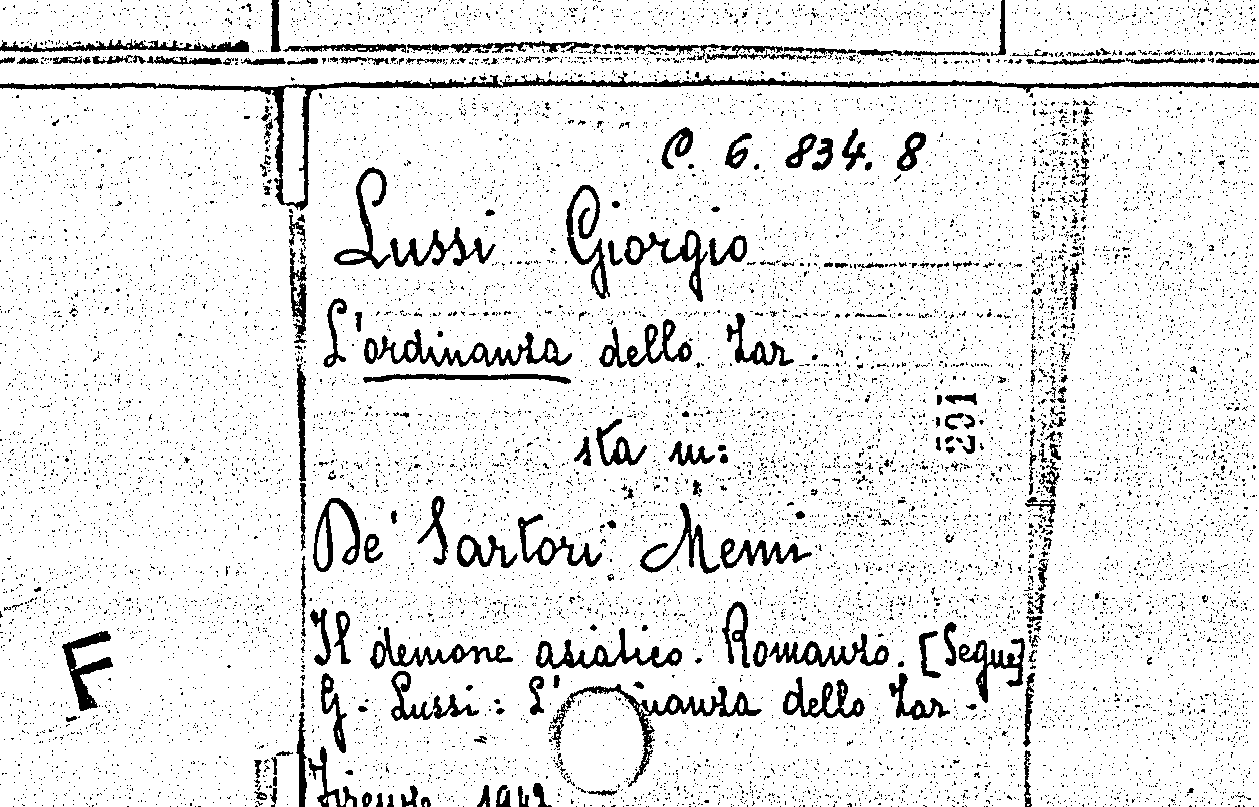 C. 6. 834. 8
Lussi Giorgio
L'ordinanza dello Zar.
201
sta in:
De' Sartori Memi
Il demone asiatico. Romanzo. [Segue]
G. Lussi: L' inanza dello Zar.
F
Firenze, 1942